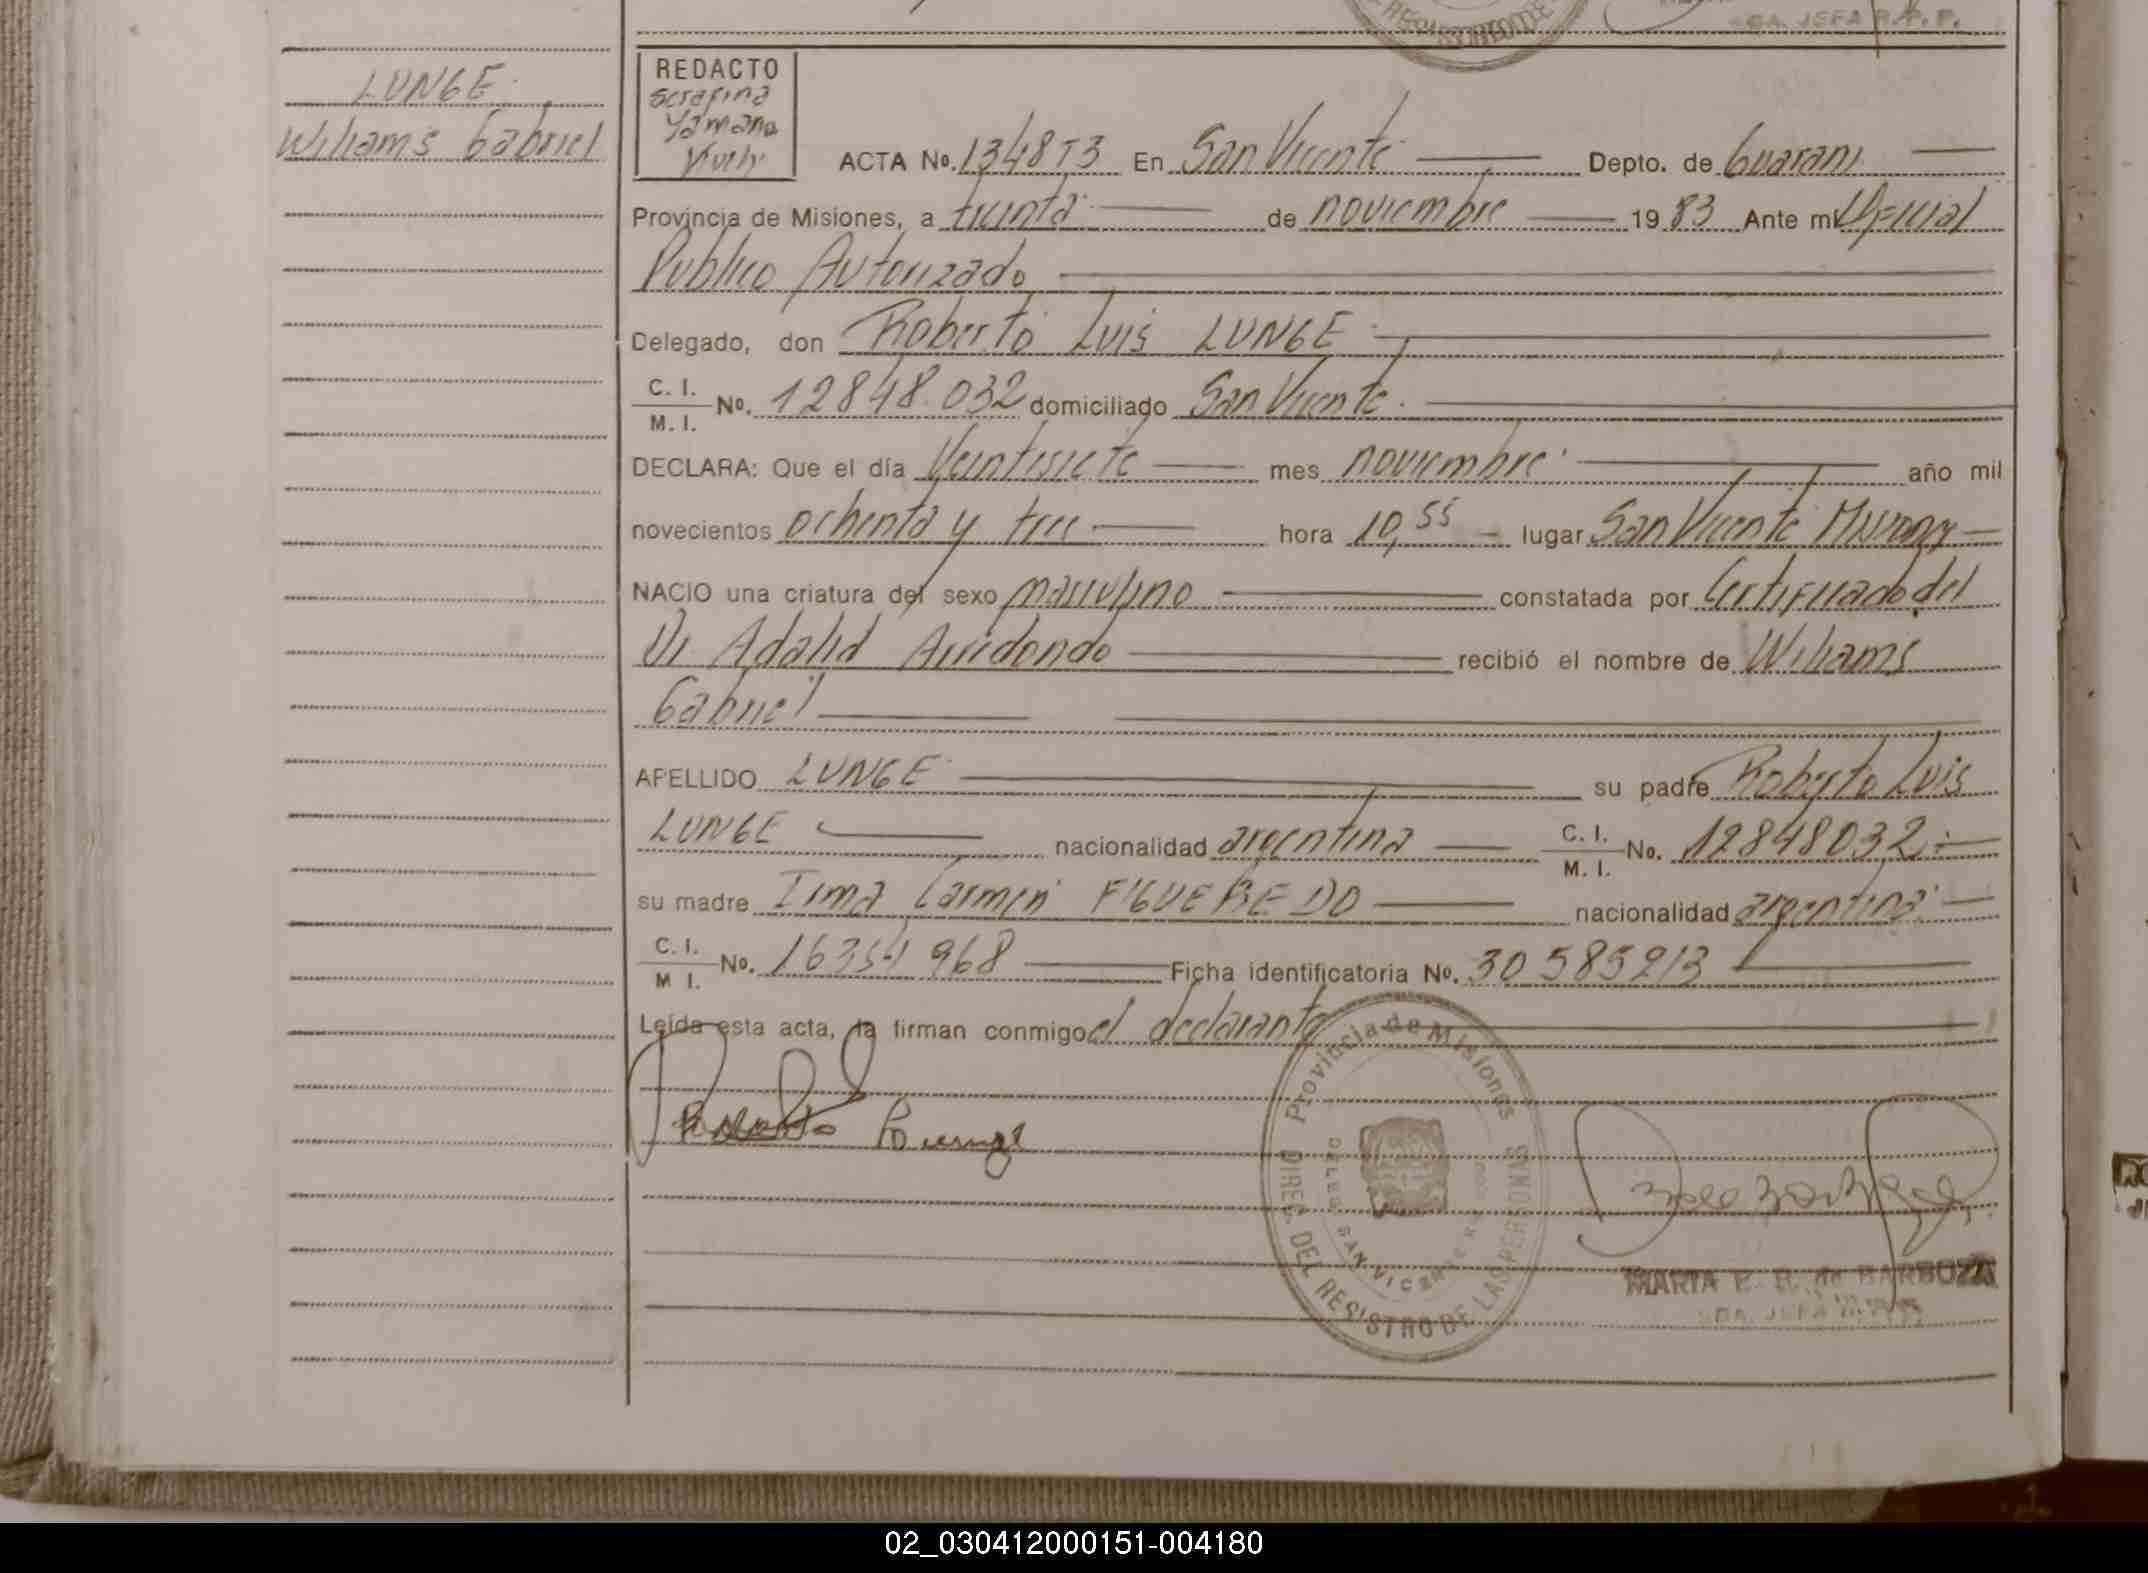 REGISTRO DE
SA. JEFA R.P.P.
LUNGE
Wiliams Gabriel
REDACTO
Serafina
Yamana
ACTA No. 1348T3 En San Vicente Depto. de Guaraní
Provincia de Misiones, a treinta de noviembre 1983 Ante mi Oficial
Publico Autorizado
Delegado, don Roberto Luis LUNGE
C. I.
M. I. No. 12848.032 domiciliado San Vicente.
DECLARA: Que el día Veintisiete mes noviembre año mil
novecientos ochenta y tres hora 10,55 lugar San Vicente Misiones
NACIO una criatura del sexo masculino constatada por Certificado del
Dr Adalid Arredondo recibió el nombre de Wiliams
Gabriel
APELLIDO LUNGE su padre Roberto Luis
LUNGE nacionalidad argentina C. I.
M. I. No. 12848032
su madre Irma Carmen FIGUEREDO nacionalidad argentina
C. I.
M I. No. 16354968 Ficha identificatoria No. 30 585213
Leída esta acta, la firman conmigo el declarante
Roberto Luenge
Provincia de Misiones
DIREC. DEL REGISTRO DE LAS PERSONAS
SAN VICENTE
MARTA E. B. de BARBOZA
SA. JEFA
02_030412000151-004180